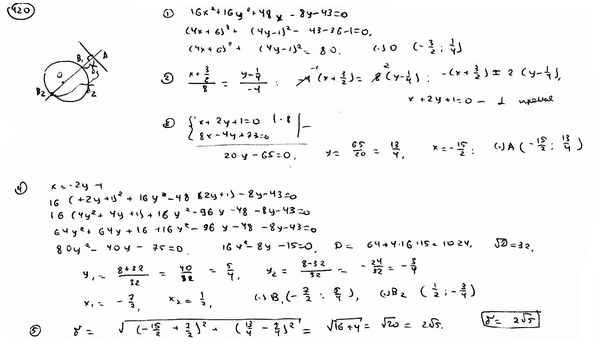 420
① 16x²+16y²+48x-8y-43=0
(4x+6)²+ (4y-1)²- 43-36-1=0,
(4x+6)²+ (4y-1)²= 80. (·)O (-3/2; 1/4)
② (x+3/2)/8 = (y-1/4)/-4; -4⁻¹(x+3/2)= 8²(y-1/4); -(x+3/2)= 2(y-1/4),
x+2y+1=0 - ⊥ прямая
③ { x+2y+1=0 |·8
8x-4y+73=0
20y-65=0, y= 65/20 = 13/4, x=-15/2; (·)A(-15/2; 13/4)
O
B₁
A
B₂
④ x=-2y-1
16(+2y+1)²+16y²-48(2y+1)-8y-43=0
16(4y²+4y+1)+16y²-96y-48-8y-43=0
64y²+64y+16+16y²-96y-48-8y-43=0
80y²-40y-75=0. 16y²-8y-15=0, D= 64+4·16·15=1024, √D=32,
y₁= (8+32)/32 = 40/32 = 5/4, y₂= (8-32)/32 = -24/32 = -3/4
x₁=-7/2, x₂=1/2, (·)B₁(-7/2; 5/4), (·)B₂ (1/2; -3/4)
⑤ r= √((-15/2+7/2)²+(13/4-5/4)²)= √(16+4)= √20= 2√5. r= 2√5